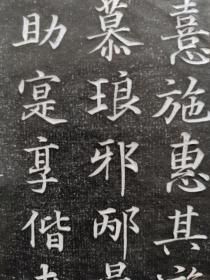 憙施惠其
慕琅邪邴
助寔享偕